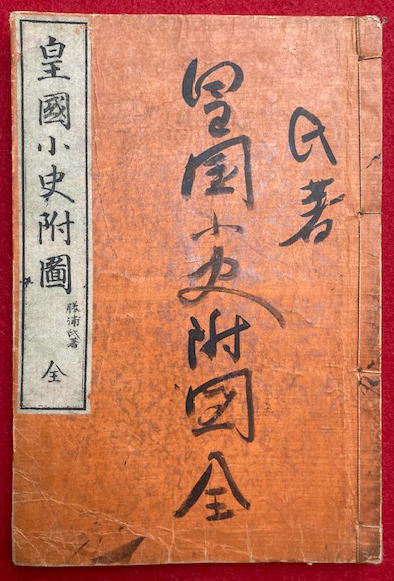 氏著
皇国小史附図全
皇國小史附圖
勝浦氏著
全